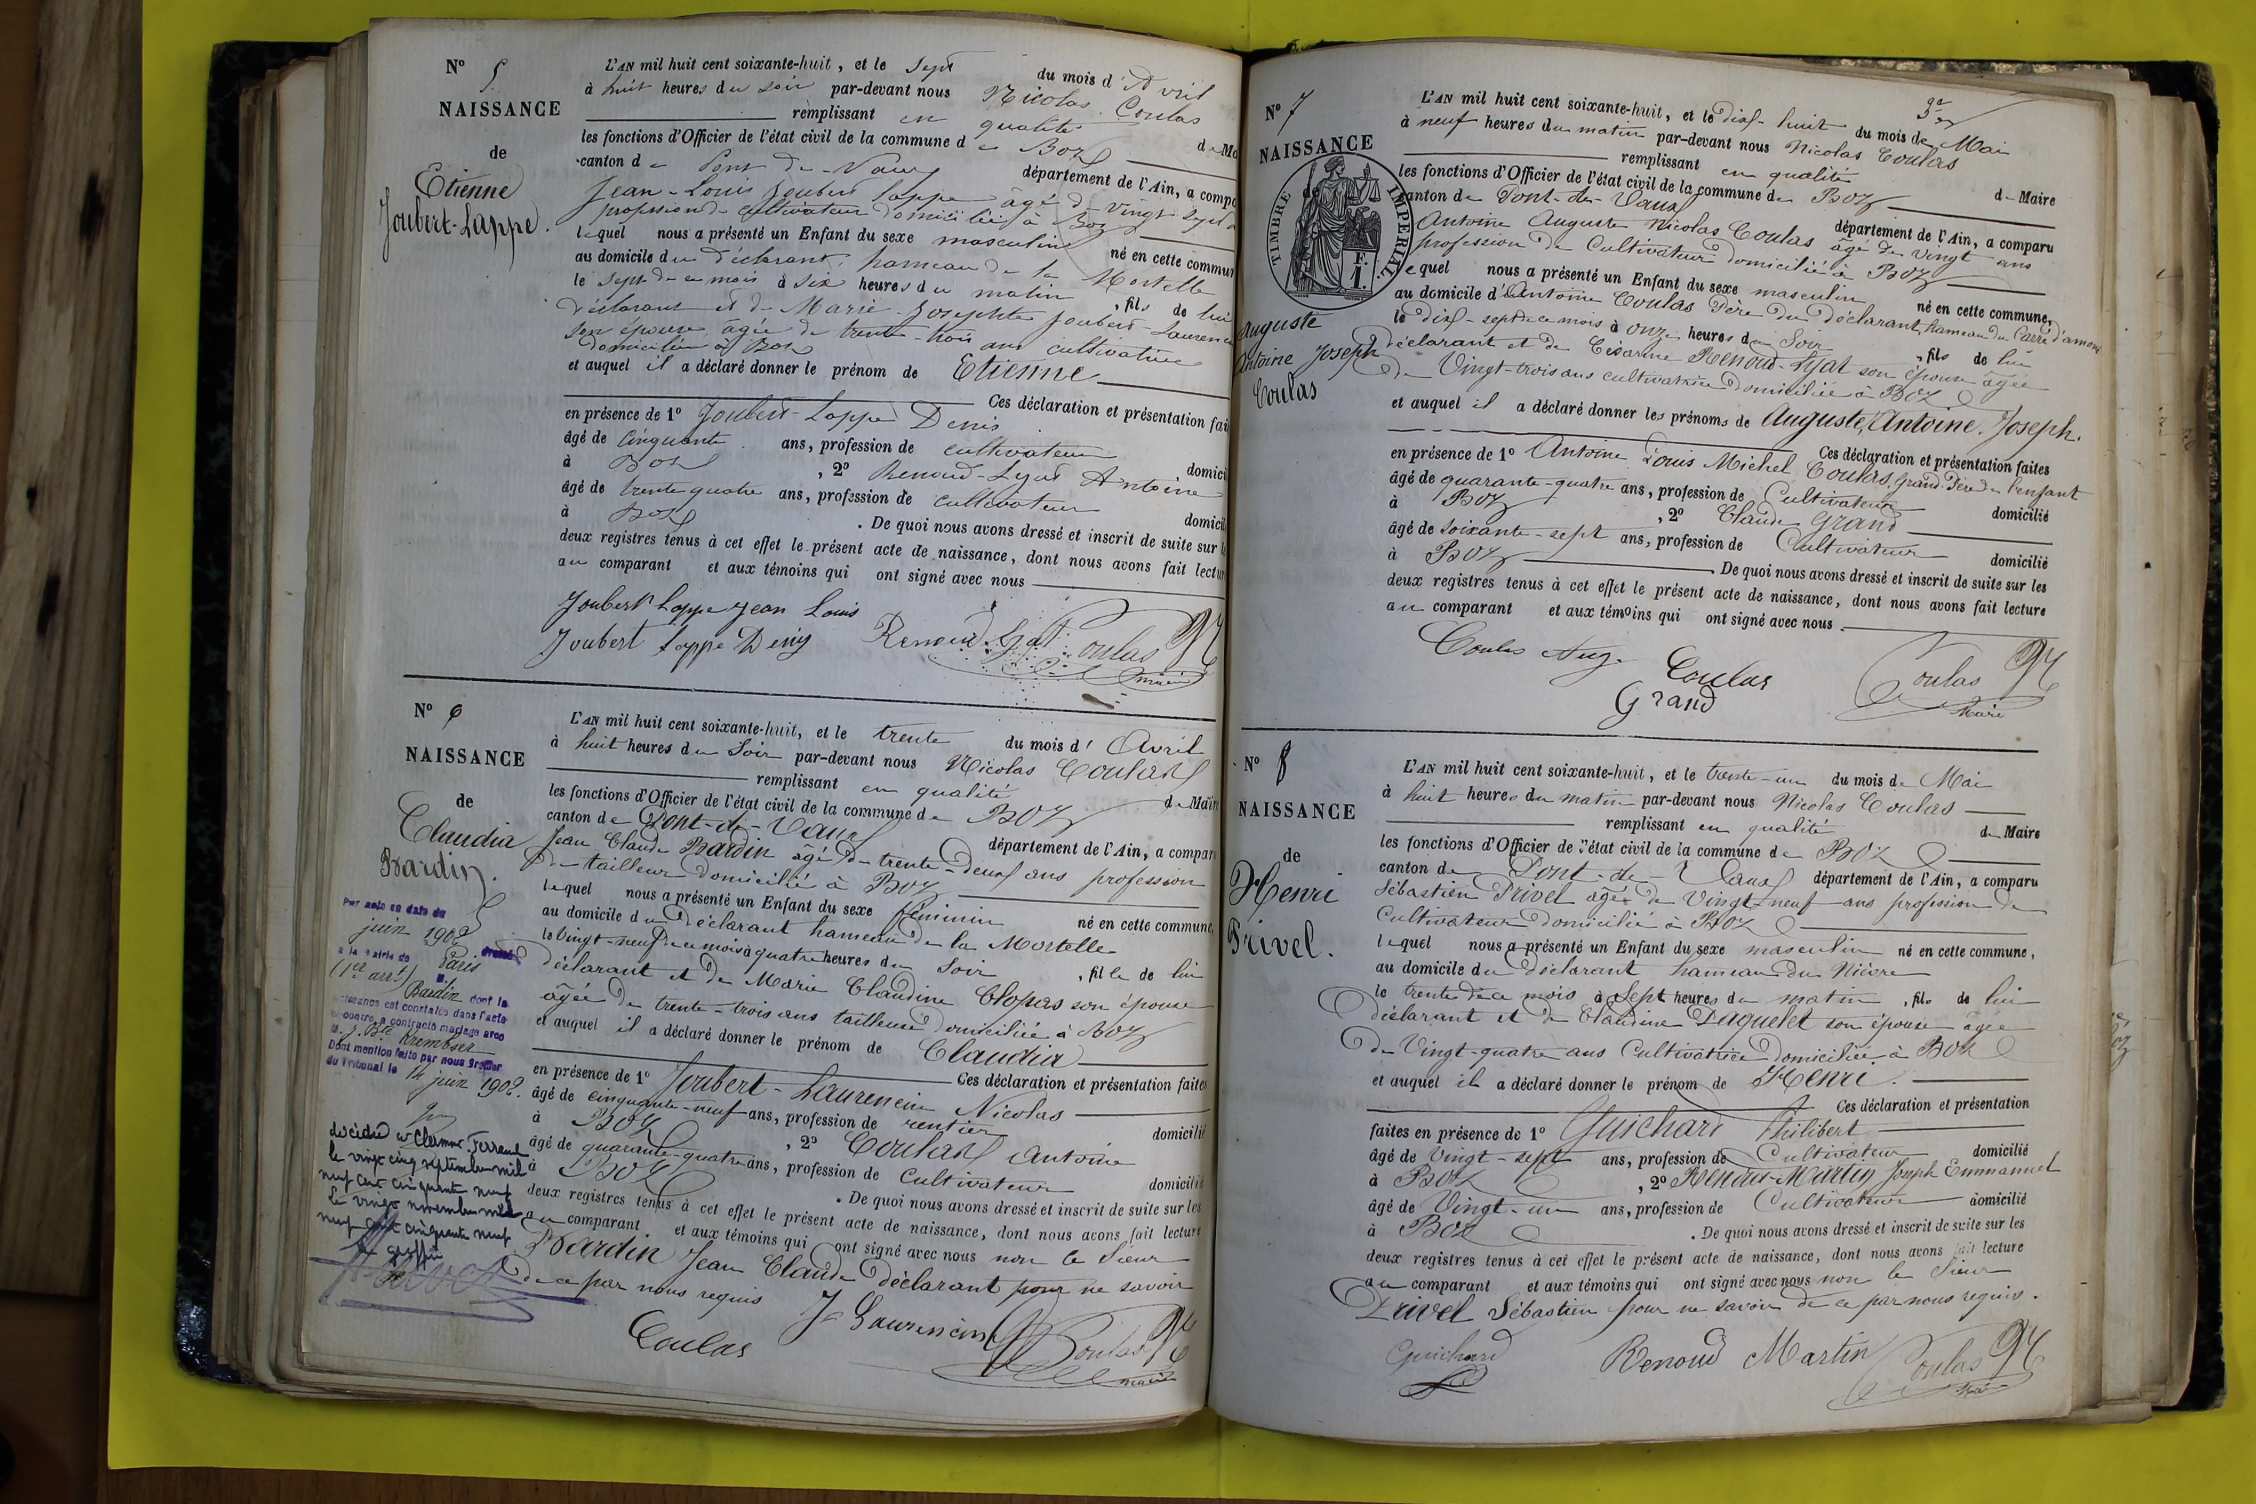 N° 5
NAISSANCE
de
Etienne
Joubert-Lappe.
L'AN mil huit cent soixante-huit, et le sept du mois d'Avril
à huit heures du soir par-devant nous Nicolas Coulas
remplissant en qualité de Ma
les fonctions d'Officier de l'état civil de la commune de Boz
canton de Pont-de-Vaux département de l'Ain, a compa
Jean-Louis Joubert Lappe âgé de vingt-sept
profession de cultivateur domicilié à Boz
lequel nous a présenté un Enfant du sexe masculin né en cette commun
au domicile du déclarant, hameau de la Mortelle
le sept de ce mois à six heures du matin, fils de lui
déclarant et de Marie-Josephte Joubert-Laurenc
son épouse âgée de trente-trois ans cultivatrice
domiciliée à Boz
et auquel il a déclaré donner le prénom de Etienne
Ces déclaration et présentation fai
en présence de 1° Joubert-Lappe Denis
âgé de cinquante ans, profession de cultivateur domici
à Boz, 2° Renoud-Lyat Antoine
âgé de trente quatre ans, profession de cultivateur domicil
à Boz. De quoi nous avons dressé et inscrit de suite sur l
deux registres tenus à cet effet le présent acte de naissance, dont nous avons fait lectur
au comparant et aux témoins qui ont signé avec nous
Joubert Lappe Jean Louis
Joubert Lappe Deniy Renoud-Lyat Coulas
maire
N° 6
NAISSANCE
de
Claudia
Bardin.
Par acte en date du
juin 1902 dressé
à la Mairie de Paris
(1er arrt) M.
Bardin dont la
naissance est constatée dans l'acte
ci-contre, a contracté mariage avec
M. J. Bte Krembser
Dont mention faite par nous Greffier
du Tribunal le 14 juin 1902.
décédée à Clermont-Ferrand
le vingt cinq septembre mil
neuf cent cinquante neuf
Le vingt novembre mil
neuf cent cinquante neuf
greffier
L'AN mil huit cent soixante-huit, et le trente du mois d'Avril
à huit heures du Soir par-devant nous Nicolas Coulas
remplissant en qualité de Maire
les fonctions d'Officier de l'état civil de la commune de BOZ
canton de Pont-de-Vaux département de l'Ain, a compar
Jean Claude Bardin âgé de trente-deux ans profession
de tailleur domicilié à Boz
lequel nous a présenté un Enfant du sexe féminin né en cette commune,
au domicile du déclarant hameau de la Mortelle
le Vingt-neuf de ce mois à quatre heures du Soir, fille de lui
déclarant et de Marie Claudine Clopas son épouse
âgée de trente-trois ans tailleuse domiciliée à Boz
et auquel il a déclaré donner le prénom de Claudia
Ces déclaration et présentation faites
en présence de 1° Joubert-Laurencin Nicolas
âgé de cinquante-neuf ans, profession de rentier domicilié
à BOZ, 2° Coulas Antoine
âgé de quarante-quatre ans, profession de Cultivateur domicilié
à BOZ. De quoi nous avons dressé et inscrit de suite sur les
deux registres tenus à cet effet le présent acte de naissance, dont nous avons fait lecture
au comparant et aux témoins qui ont signé avec nous non le Sieur
Bardin Jean Claude déclarant pour ne savoir
de ce par nous requis
Coulas J Laurencin Coulas
maire
N° 7
NAISSANCE
de
TIMBRE IMPÉRIAL.
F.
1.
Auguste
Antoine Joseph
Coulas
L'AN mil huit cent soixante-huit, et le dix-huit du mois de Mai
à neuf heures du matin par-devant nous Nicolas Coulas
remplissant en qualité de Maire
les fonctions d'Officier de l'état civil de la commune de BOZ
canton de Pont-de-Vaux département de l'Ain, a comparu
Antoine Auguste Nicolas Coulas âgé de vingt ans
profession de Cultivateur domicilié à BOZ
lequel nous a présenté un Enfant du sexe masculin né en cette commune,
au domicile d'Antoine Coulas Père du déclarant, hameau du Carre d'amont
le dix-sept de ce mois à onze heures du Soir, fils de lui
déclarant et de Césarine Renoud-Lyat son épouse âgée
de Vingt-trois ans cultivatrice domiciliée à BOZ
et auquel il a déclaré donner les prénoms de Auguste, Antoine, Joseph.
Ces déclaration et présentation faites
en présence de 1° Antoine Louis Michel Coulas, Grand-Père de l'enfant
âgé de quarante-quatre ans, profession de Cultivateur domicilié
à BOZ, 2° Claude Grand
âgé de soixante-sept ans, profession de Cultivateur domicilié
à BOZ. De quoi nous avons dressé et inscrit de suite sur les
deux registres tenus à cet effet le présent acte de naissance, dont nous avons fait lecture
au comparant et aux témoins qui ont signé avec nous.
Coulas Aug. Coulas Coulas
Grand Maire
N° 8
NAISSANCE
de
Henri
Privel.
L'AN mil huit cent soixante-huit, et le trente-un du mois de Mai
à huit heures du matin par-devant nous Nicolas Coulas
remplissant en qualité de Maire
les fonctions d'Officier de l'état civil de la commune de BOZ
canton de Pont-de-Vaux département de l'Ain, a comparu
Sébastien Privel âgé de Vingt-neuf ans profession de
Cultivateur domicilié à BOZ
lequel nous a présenté un Enfant du sexe masculin né en cette commune,
au domicile du déclarant hameau du
le trente de ce mois à Sept heures du matin, fils de lui
déclarant et de Claudine Paquelet son épouse âgée
de Vingt-quatre ans Cultivatrice domiciliée à BOZ
et auquel il a déclaré donner le prénom de Henri.
Ces déclaration et présentation
faites en présence de 1° Guichard Philibert
âgé de Vingt-sept ans, profession de Cultivateur domicilié
à BOZ, 2° Renoud-Martin Joseph Emmanuel
âgé de Vingt-un ans, profession de Cultivateur domicilié
à BOZ. De quoi nous avons dressé et inscrit de suite sur les
deux registres tenus à cet effet le présent acte de naissance, dont nous avons fait lecture
au comparant et aux témoins qui ont signé avec nous non le Sieur
Privel Sébastien pour ne savoir de ce par nous requis.
Guichard Renoud Martin Coulas